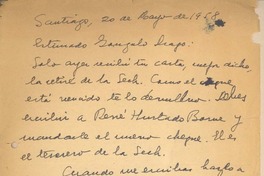 Santiago, 20 de Mayo de 1958
Estimado Gonzalo Drago:
Solo ayer recibí tu carta, mejor dicho,
la citación de la Sech. Como el cheque
está vencido te lo devuelvo. Debes
escribir a René Hurtado Borne y
mandarle el nuevo cheque. Él es
el tesorero de la Sech.
Cuando me escribas hazlo a